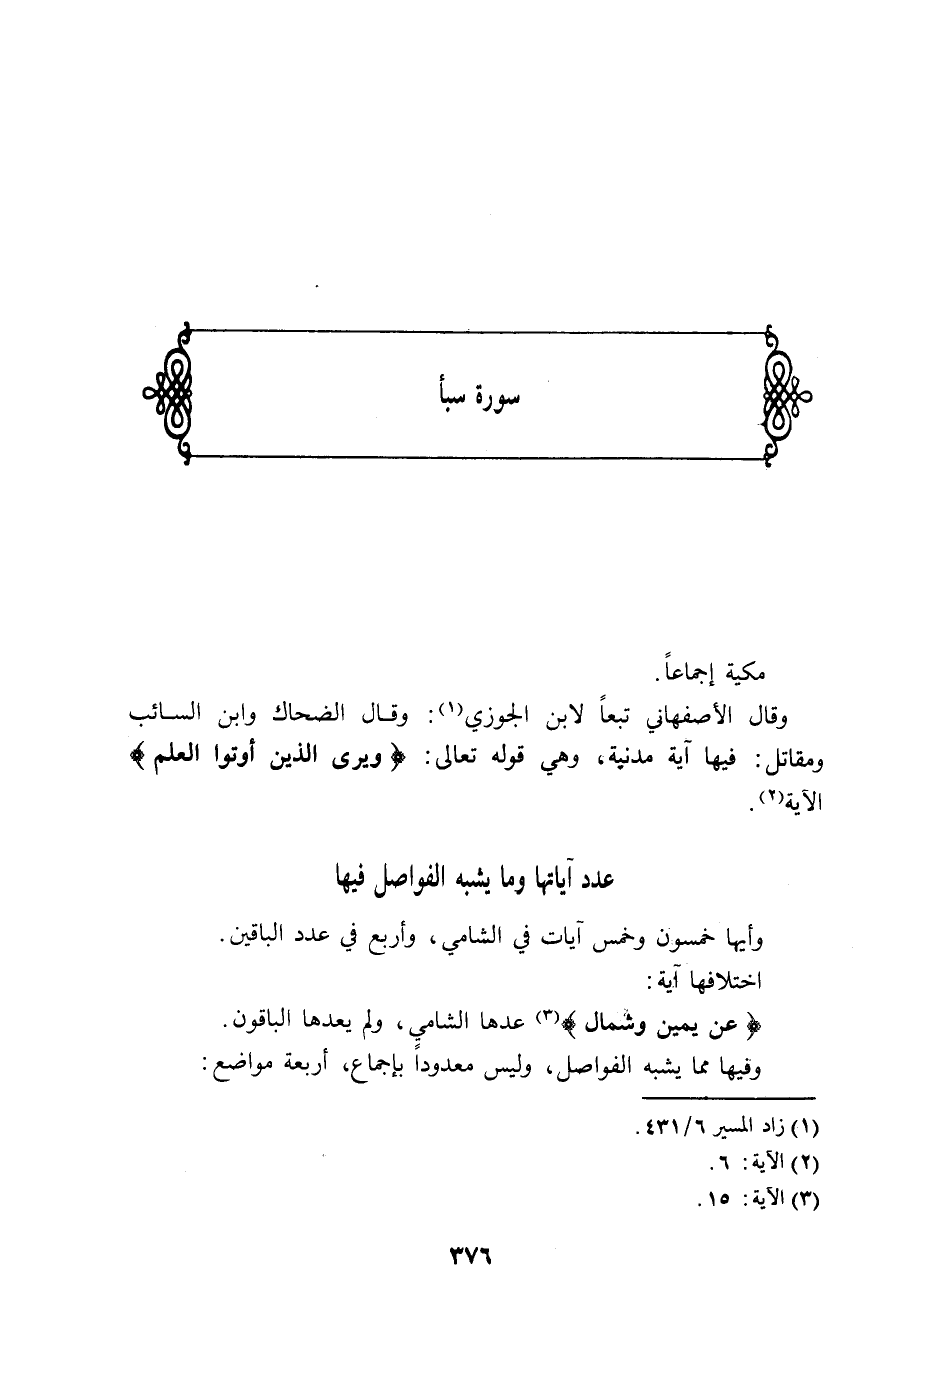 سورة سبأ
مكية إجماعاً.
وقال الأصفهاني تبعاً لابن الجوزي(١): وقـال الضحاك وابن السـائب
ومقاتل: فيها آية مدنية، وهي قوله تعالى: ﴿ ويرى الذين أوتوا العلم ﴾
الآية(٢).
عدد آياتها وما يشبه الفواصل فيها
وأيها خمسون وخمس آيات في الشامي، وأربع في عدد الباقين.
اختلافها آية:
﴿ عن يمين وشمال ﴾(٣) عدها الشامي، ولم يعدها الباقون.
وفيها مما يشبه الفواصل، وليس معدوداً بإجماع، أربعة مواضع:
(١) زاد المسير ٦/٤٣١.
(٢) الآية: ٦.
(٣) الآية: ١٥.
٣٧٦